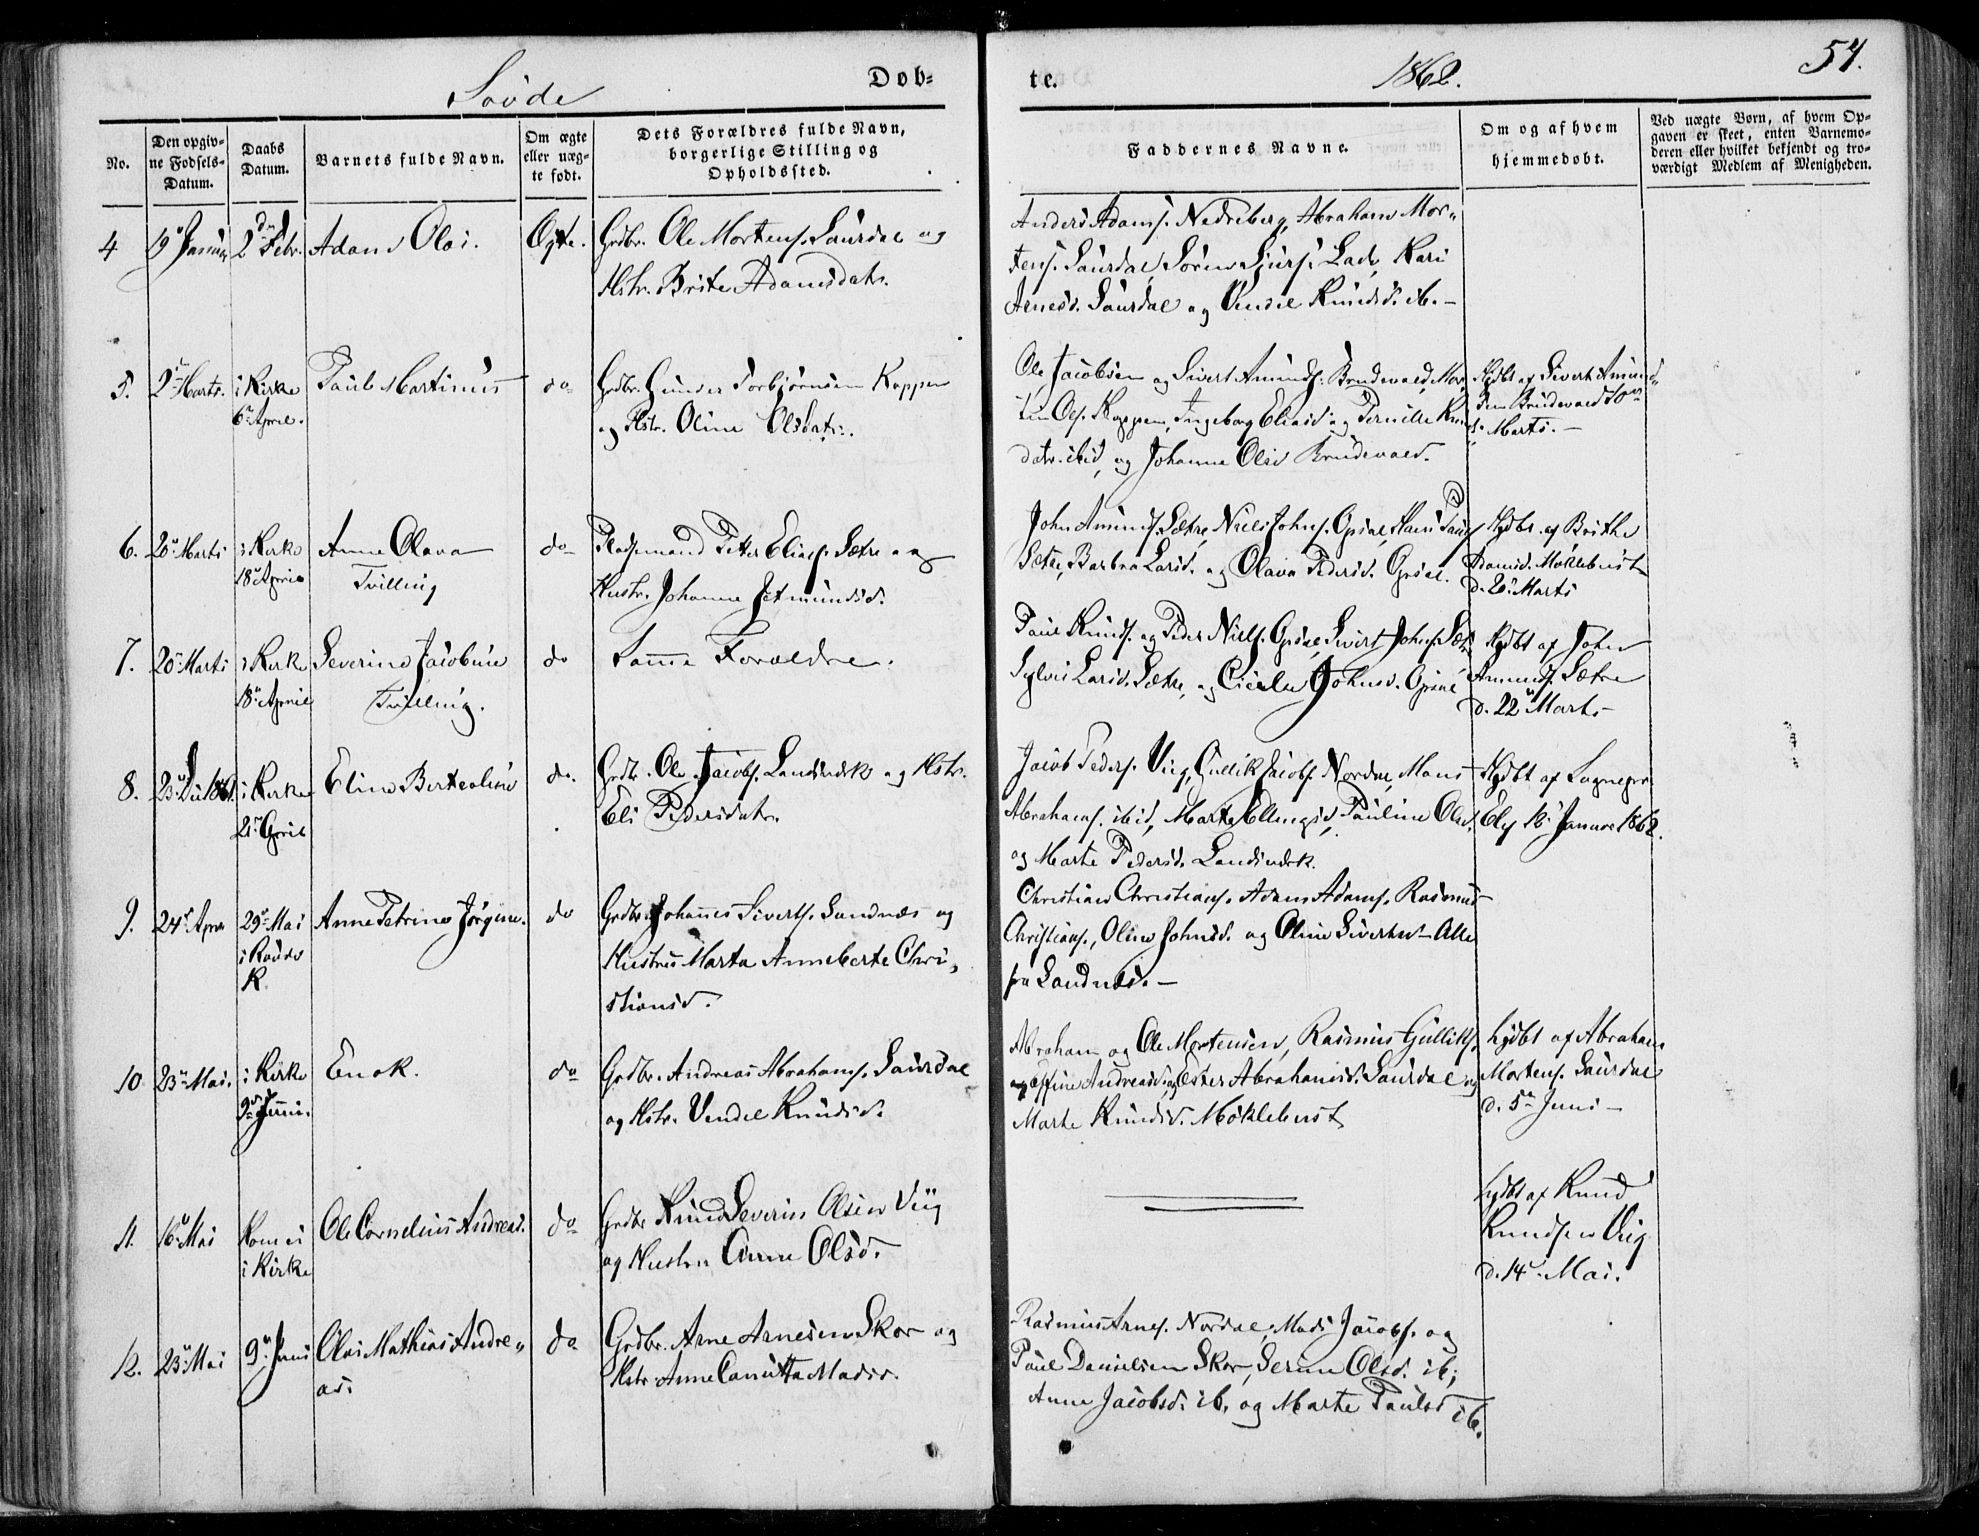 Søvde
Døb=
te.
1862.
54.
No.
Den opgiv=
ne Fødsels=
Datum.
Daabs
Datum.
Barnets fulde Navn.
Om ægte
eller uæg=
te født.
Dets Forældres fulde Navn,
borgerlige Stilling og
Opholdssted.
Faddernes Navne.
Om og af hvem
hjemmedøbt.
Ved uægte Børn, af hvem Op=
gaven er skeet, enten Barnemo=
deren eller hvilket bekjendt og tro=
værdigt Medlem af Menigheden.
4
19 Januar
2den Febr.
Adam Olai.
Ægte.
Grdbr. Ole Mortens. Saurdal og
Hstr. Brite Adamsdatr.
Anders Adams. Nedreberg, Abraham Mor=
tens. Saurdal, Søren Sjurs. Lade, Kari
Arnesd. Saurdal og Vendel Knudsd. ib.—
5.
2n Marts.
i Kirke
6n April.
Paul Martinus
do
Grdbr. Gunder Torbjørnsen Koppen
og Hstr. Oline Olsdatr.
Ole Jacobsen og Sivert Amunds. Brudevold, Mor=
ten Ols. Koppen, Ingeborg Eliasd. og Pernille Knuds=
datr. ibid, og Johanne Olsd Brudevold.
Hjdbt af Sivert Amund=
sen Brudevold 10n
Marts.—
6.
20n Marts
i Kirke
18n April
Anne Olava
Tvilling
do
Pladsemand Peter Elias. Sætre og
Hustr. Johanne Jetmundsd.
John Amunds. Sætre, Niels Johns. Opsal, Hans Pauls.
Sætre, Barbra Larsd. og Olava Pedersd. Opsal.
Hjdbt. af Brithe
Adamsd. Møklebust
d. 20n Marts
7.
20n Marts
i Kirke
18n April
Severine Jacobine
Tvilling.
do
Samme Forældre.
Paul Knuds. og Peder Niels. Opsal, Sivert Johns. Sætre
Sylvi Larsd. Sætre, og Cicilie Johnsd. Opsal
Hjdbt af John
Amunds. Sætre
d. 22n Marts
8.
23n Dec 1861.
i Kirke
21n April
Eline Bertoline
do.
Grdbr. Ole Jacobs. Landsverk og Hstr.
Eli Pedersdatr.
Jacob Peders. Viig, Gullik Jacobs. Nordal, Mons
Abrahams. ibid, Marte Ellingsd, Pauline Olsd.
og Marte Pedersd. Landsverk.
Hjdbt af Sognepr
Ely 18n Januar 1862.
9.
24n April
29n Mai
i Rovde
K.
Anne Petrine Jørgine.
do
Grdbr. Johannes Siverts. Sandnæs og
Hustru Marta Anneberte Chri=
stiansd.
Christian Christians. Adam Adams. Rasmus
Christians., Oline Johnsd. og Oline Sivertsd.— Alle
fra Sandnæs.—
10
23n Mai.
i Kirke
9n Juni.
Enok.
do
Grdbr. Andreas Abrahams. Saurdal
og Hstr. Vendel Knudsd.
Abraham og Ole Mortensen, Rasmus Gulliks.
Andreasd. og Ester Abrahamsd. Saurdal og
Marte Knudsd. Møklebust
hjdbt af Abraham
Mortens. Saurdal
d. 5n Juni—
11.
16n Mai
Kom ei
i Kirke
Ole Cornelius Andreas.
do
Grdbr Knud Severin Olsen Viig
og Hustru Anne Olsd.
hjdbt af Knud
Knudsen Viig
d. 14n Mai.
12.
23n Mai
9n Juni
Olai Mathias Andre=
as.
do
Grdbr. Arne Arnesen Skor og
Hstr. Anne Canutta Madsd.
Rasmus Arnes. Nordal, Mads Jacobs. og
Paul Danielsen Skor, Serine Olsd. ib,
Anne Jacobsd. ib. og Marte Paulsd ib.